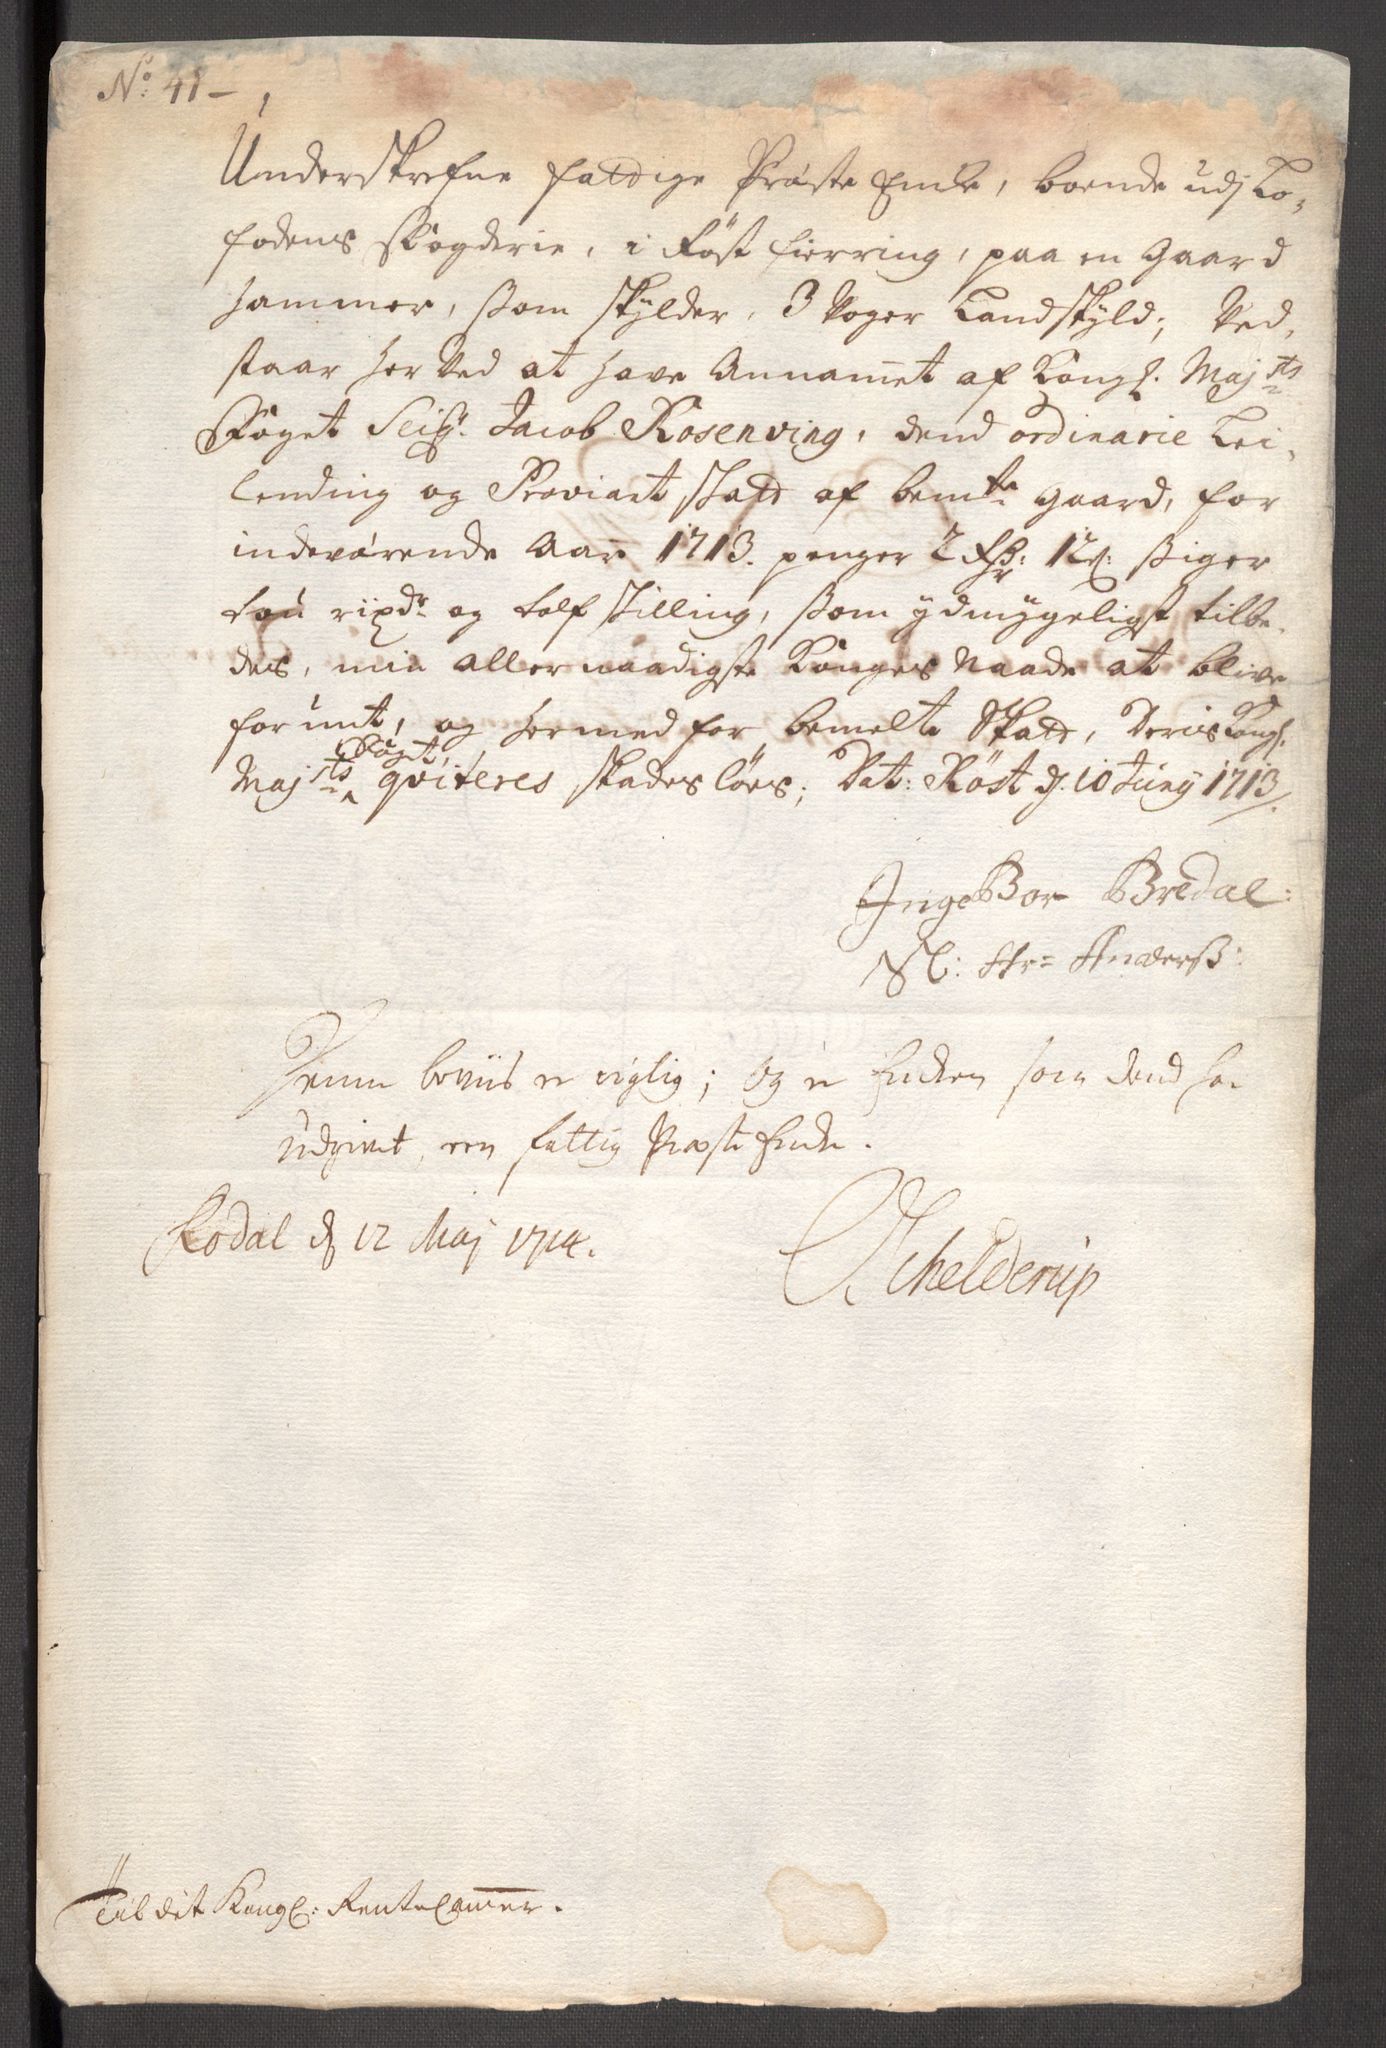 No: 41-
Underskrefne fattige Præste Encke, boende udj Lo,
fodens fogderie, i Röst fierring, paa en Gaard
Hammer, som skylder, 3 Voger Landskyld; Ved,
staar her Ved at have Annammet af Kongl. Majsts
Foget Seigr. Jacob Rosenving, dend ordinarie Lei,
lending og Proviant skatt af bemte gaard, for
indeværende Aar 1713. penger 2 Rdr: 12s: siger
tou rixdr og tolf skilling, som ydmygeligst tilbe,
des, min allernaadigste Konges Naade at blive
forunt, og hermed for bemelte Skatt, Deris Kongl.
Majsts foget qviteres skadeslöes; Dat: Röst d. 10 Junij 1713.
IngeBor Bredal:
Sl: Hr= Anderss:
Denne beviis er rigtig; og er Encken som dend ha
udgivet, een fattig Præste Encke.
Bodal d 12 Maj 1714.
Schelderup
Til det Kongl: RenteCammer.